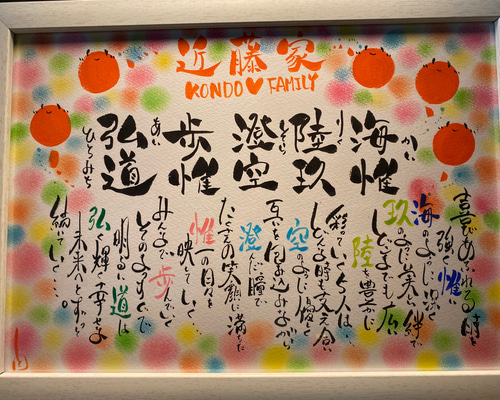 近藤家
KONDO♥FAMILY
海惟
かい
陸玖
りく
澄空
歩惟
あい
弘道
ひろみち
喜びあふれる時も
強く惟
海のように
玖のように美しい絆で
どこまでも広い
陸を豊かに
彩っていく人は…
どんな時も支え合い
空のように優しく
互いを包み込みながら
澄んだ瞳で
たくさんの笑顔に満ちた
惟一の日々を
映していく…
みんなで歩んでいく
その
明るい道は
弘く輝く幸せな
未来へとずっと
続いていく…。